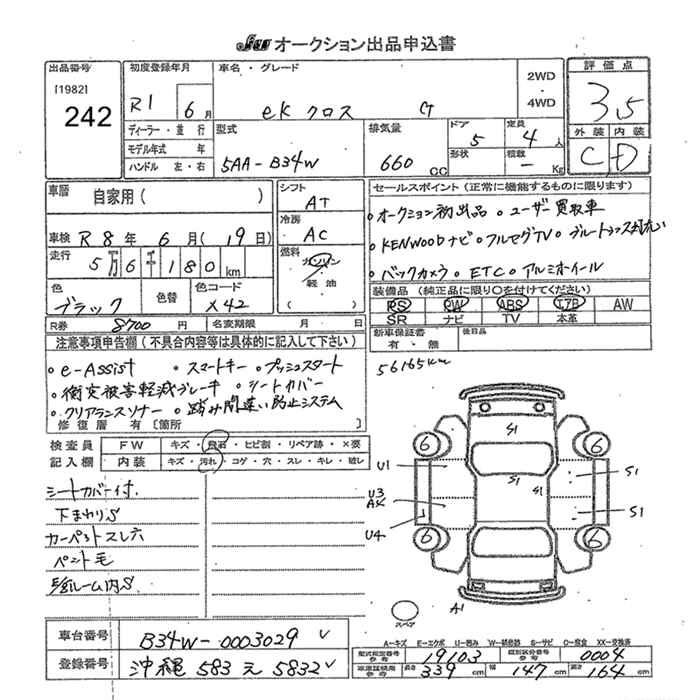 JU オークション出品申込書
出品番号 初度登録年月 車名・グレード 評価点
[1982] 242 R1 6月 eK クロス G 2WD・4WD 3.5
ディーラー・並行 型式 排気量 ドア 5 定員 4人 外装 内装
モデル年式 年 形状 積載
ハンドル 左・右 5AA-B34W 660CC - Kg C D
車暦 自家用( ) シフト AT セールスポイント(正常に機能するものに限ります)
冷房 AC 。オークション初出品 。ユーザー買取車
車検 R8年 6月(19日) 。KENWOODナビ。フルセグTV
走行 5万6千180km 燃料 ガソリン・軽油 ( ) 。バックカメラ。ETC。アルミホイール
色 ブラック 色替 色コード X42 装備品(純正品に限り○を付けてください)
PS PW ABS エアB AW
SR ナビ TV 本革
R券 8700円 名変期限 月 日 新車保証書 有・無 後日品
注意事項申告欄(不具合内容等は具体的に記入して下さい)
56165km
。e-Assist 。スマートキー。プッシュスタート
。衝突被害軽減ブレーキ 。シートカバー
。クリアランスソナー。踏み間違い防止システム
修復暦 有〔箇所 〕
検査員 FW キズ・飛石・ヒビ割・リペア跡・×要
記入欄 内装 キズ・汚れ・コゲ・穴・スレ・キレ・破レ
シートカバー付
下まわりS
カーペットスレ穴
ペット毛
ルーム内S
6 S1 6
U1 S1 S1
U3 S1
A4 S1
U4
6 6
A1
スペア
A-キズ E-エクボ U-凹み W-補修跡 S-サビ C-腐食 XX-交換済
車台番号 B34W-0003029
型式指定番号 参考 19103 類別区分番号 参考 0004
登録番号 沖縄 583 え 5832
長さ 339cm 幅 147cm 高さ 164cm